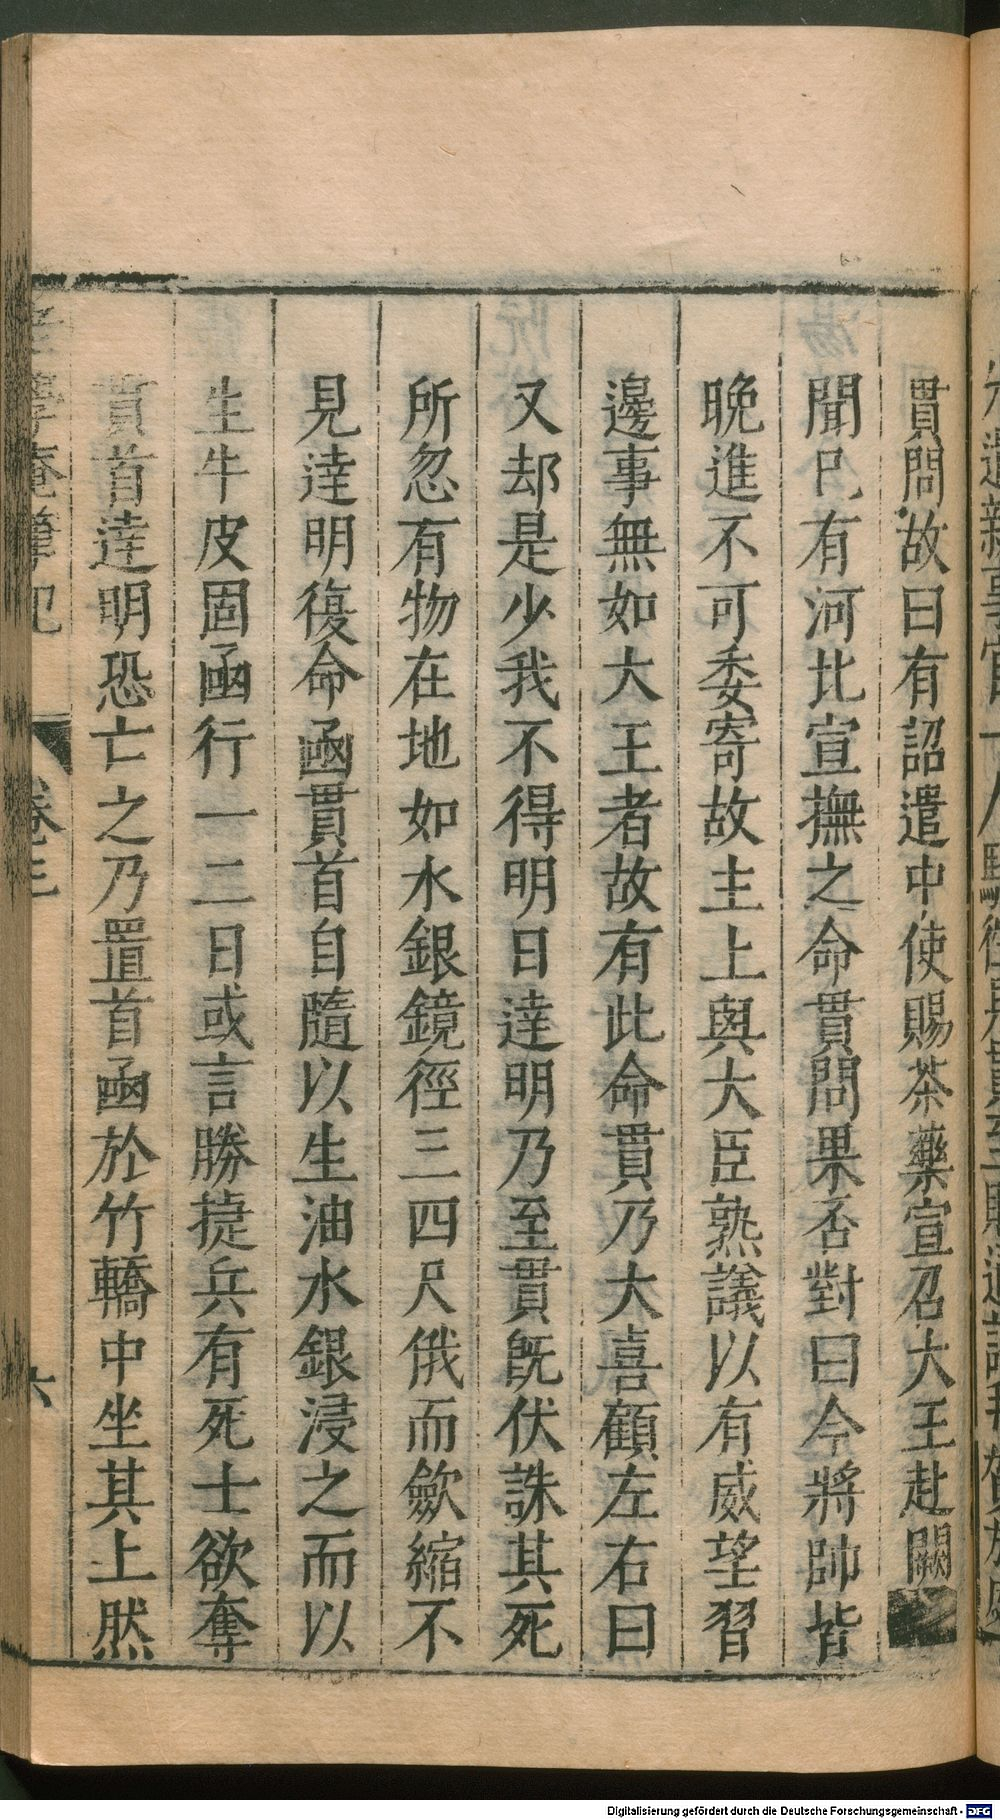 貫問故曰有詔遣中使賜茶藥宣召大王赴闕
聞已有河北宣撫之命貫問果否對曰今將帥皆
晚進不可委寄故主上與大臣熟議以有威望習
邊事無如大王者故有此命貫乃大喜顧左右曰
又却是少我不得明日達明乃至貫旣伏誅其死
所忽有物在地如水銀鏡徑三四尺俄而歛縮不
見達明復命函貫首自隨以生油水銀浸之而以
生牛皮固函行一二日或言勝捷兵有死士欲奪
貫首達明恐亡之乃置首函於竹轎中坐其上然
學庵筆記 卷三 六
Digitalisierung gefördert durch die Deutsche Forschungsgemeinschaft - DFG